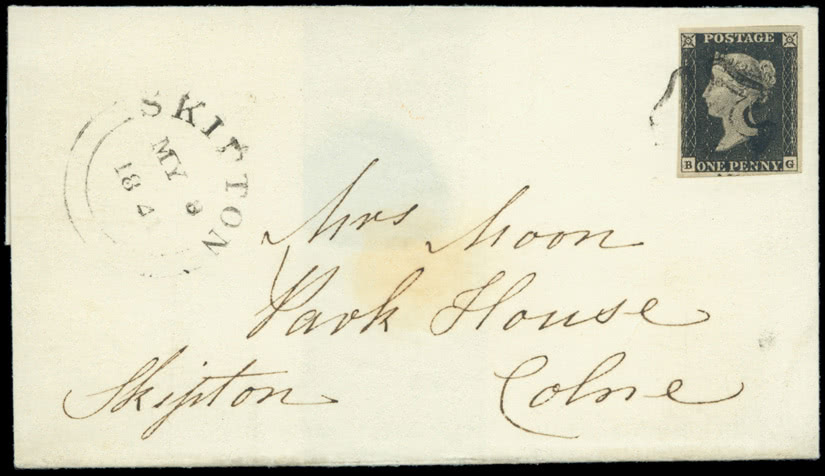 POSTAGE
B ONE PENNY G
SKIPTON
MY
184
Mrs Moon
Park House
Skipton Colne